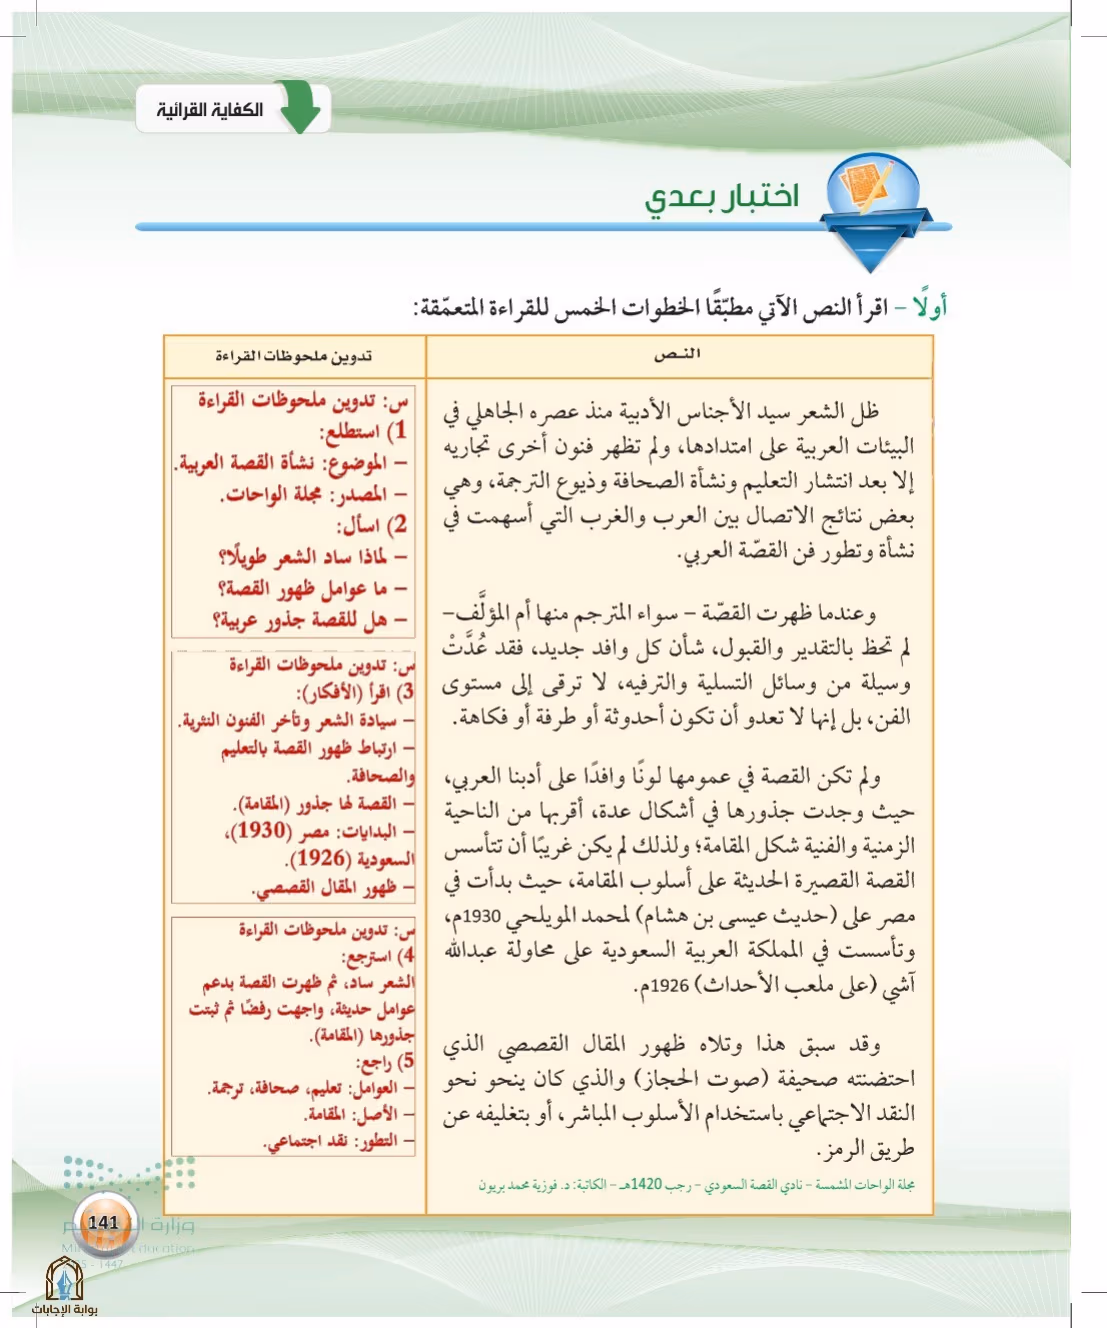 الكفاية القرائية
اختبار بعدي
أولًا – اقرأ النص الآتي مطبّقًا الخطوات الخمس للقراءة المتعمّقة:
النـص
ظل الشعر سيد الأجناس الأدبية منذ عصره الجاهلي في
البيئات العربية على امتدادها، ولم تظهر فنون أخرى تجاريه
إلا بعد انتشار التعليم ونشأة الصحافة وذيوع الترجمة، وهي
بعض نتائج الاتصال بين العرب والغرب التي أسهمت في
نشأة وتطور فن القصّة العربي.
وعندما ظهرت القصّة – سواء المترجم منها أم المؤلَّف–
لم تحظ بالتقدير والقبول، شأن كل وافد جديد، فقد عُدَّتْ
وسيلة من وسائل التسلية والترفيه، لا ترقى إلى مستوى
الفن، بل إنها لا تعدو أن تكون أحدوثة أو طرفة أو فكاهة.
ولم تكن القصة في عمومها لونًا وافدًا على أدبنا العربي،
حيث وجدت جذورها في أشكال عدة، أقربها من الناحية
الزمنية والفنية شكل المقامة؛ ولذلك لم يكن غريبًا أن تتأسس
القصة القصيرة الحديثة على أسلوب المقامة، حيث بدأت في
مصر على (حديث عيسى بن هشام) لمحمد المويلحي 1930م،
وتأسست في المملكة العربية السعودية على محاولة عبدالله
آشي (على ملعب الأحداث) 1926م.
وقد سبق هذا وتلاه ظهور المقال القصصي الذي
احتضنته صحيفة (صوت الحجاز) والذي كان ينحو نحو
النقد الاجتماعي باستخدام الأسلوب المباشر، أو بتغليفه عن
طريق الرمز.
مجلة الواحات المشمسة – نادي القصة السعودي – رجب 1420هـ – الكاتبة: د. فوزية محمد بريون
تدوين ملحوظات القراءة
س: تدوين ملحوظات القراءة
1) استطلع:
– الموضوع: نشأة القصة العربية.
– المصدر: مجلة الواحات.
2) اسأل:
– لماذا ساد الشعر طويلًا؟
– ما عوامل ظهور القصة؟
– هل للقصة جذور عربية؟
س: تدوين ملحوظات القراءة
3) اقرأ (الأفكار):
– سيادة الشعر وتأخر الفنون النثرية.
– ارتباط ظهور القصة بالتعليم
والصحافة.
– القصة لها جذور (المقامة).
– البدايات: مصر (1930)،
السعودية (1926).
– ظهور المقال القصصي.
س: تدوين ملحوظات القراءة
4) استرجع:
الشعر ساد، ثم ظهرت القصة بدعم
عوامل حديثة، واجهت رفضًا ثم ثبتت
جذورها (المقامة).
5) راجع:
– العوامل: تعليم، صحافة، ترجمة.
– الأصل: المقامة.
– التطور: نقد اجتماعي.
141
بوابة الإجابات